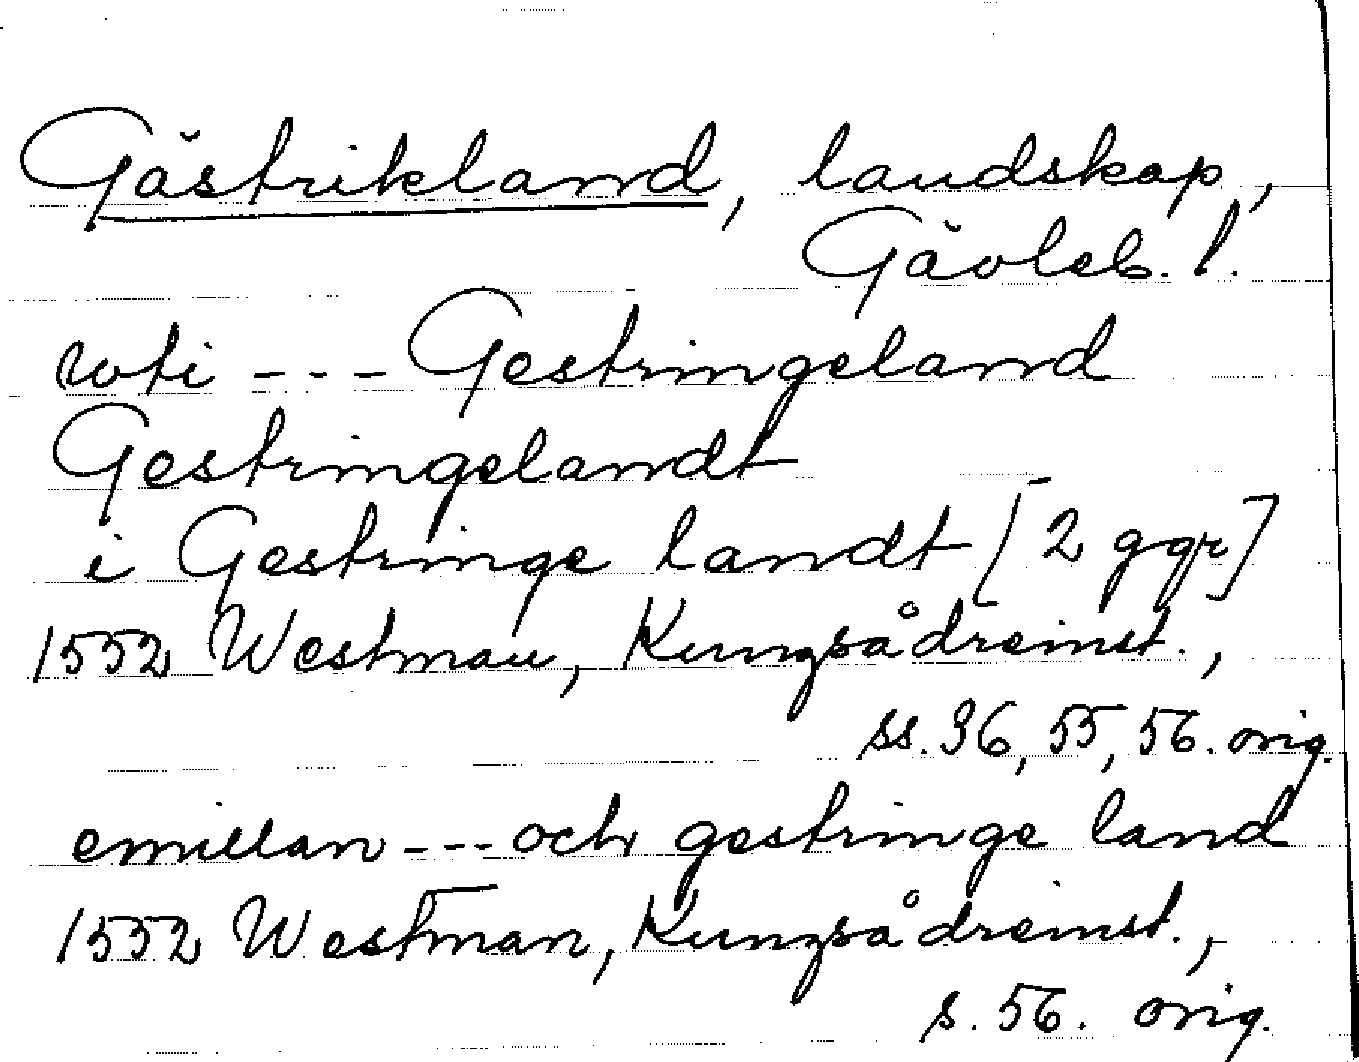 Gästrikland, landskap,
Gävleb. l.
wti --- Gestringeland
Gestringelandt
i Gestringe landt [2 ggr]
1552 Westman, Kungsådreinst.,
ss. 36, 55, 56. orig.
emillan --- och gestringe land
1552 Westman, Kungsådreinst.,
s. 56. orig.